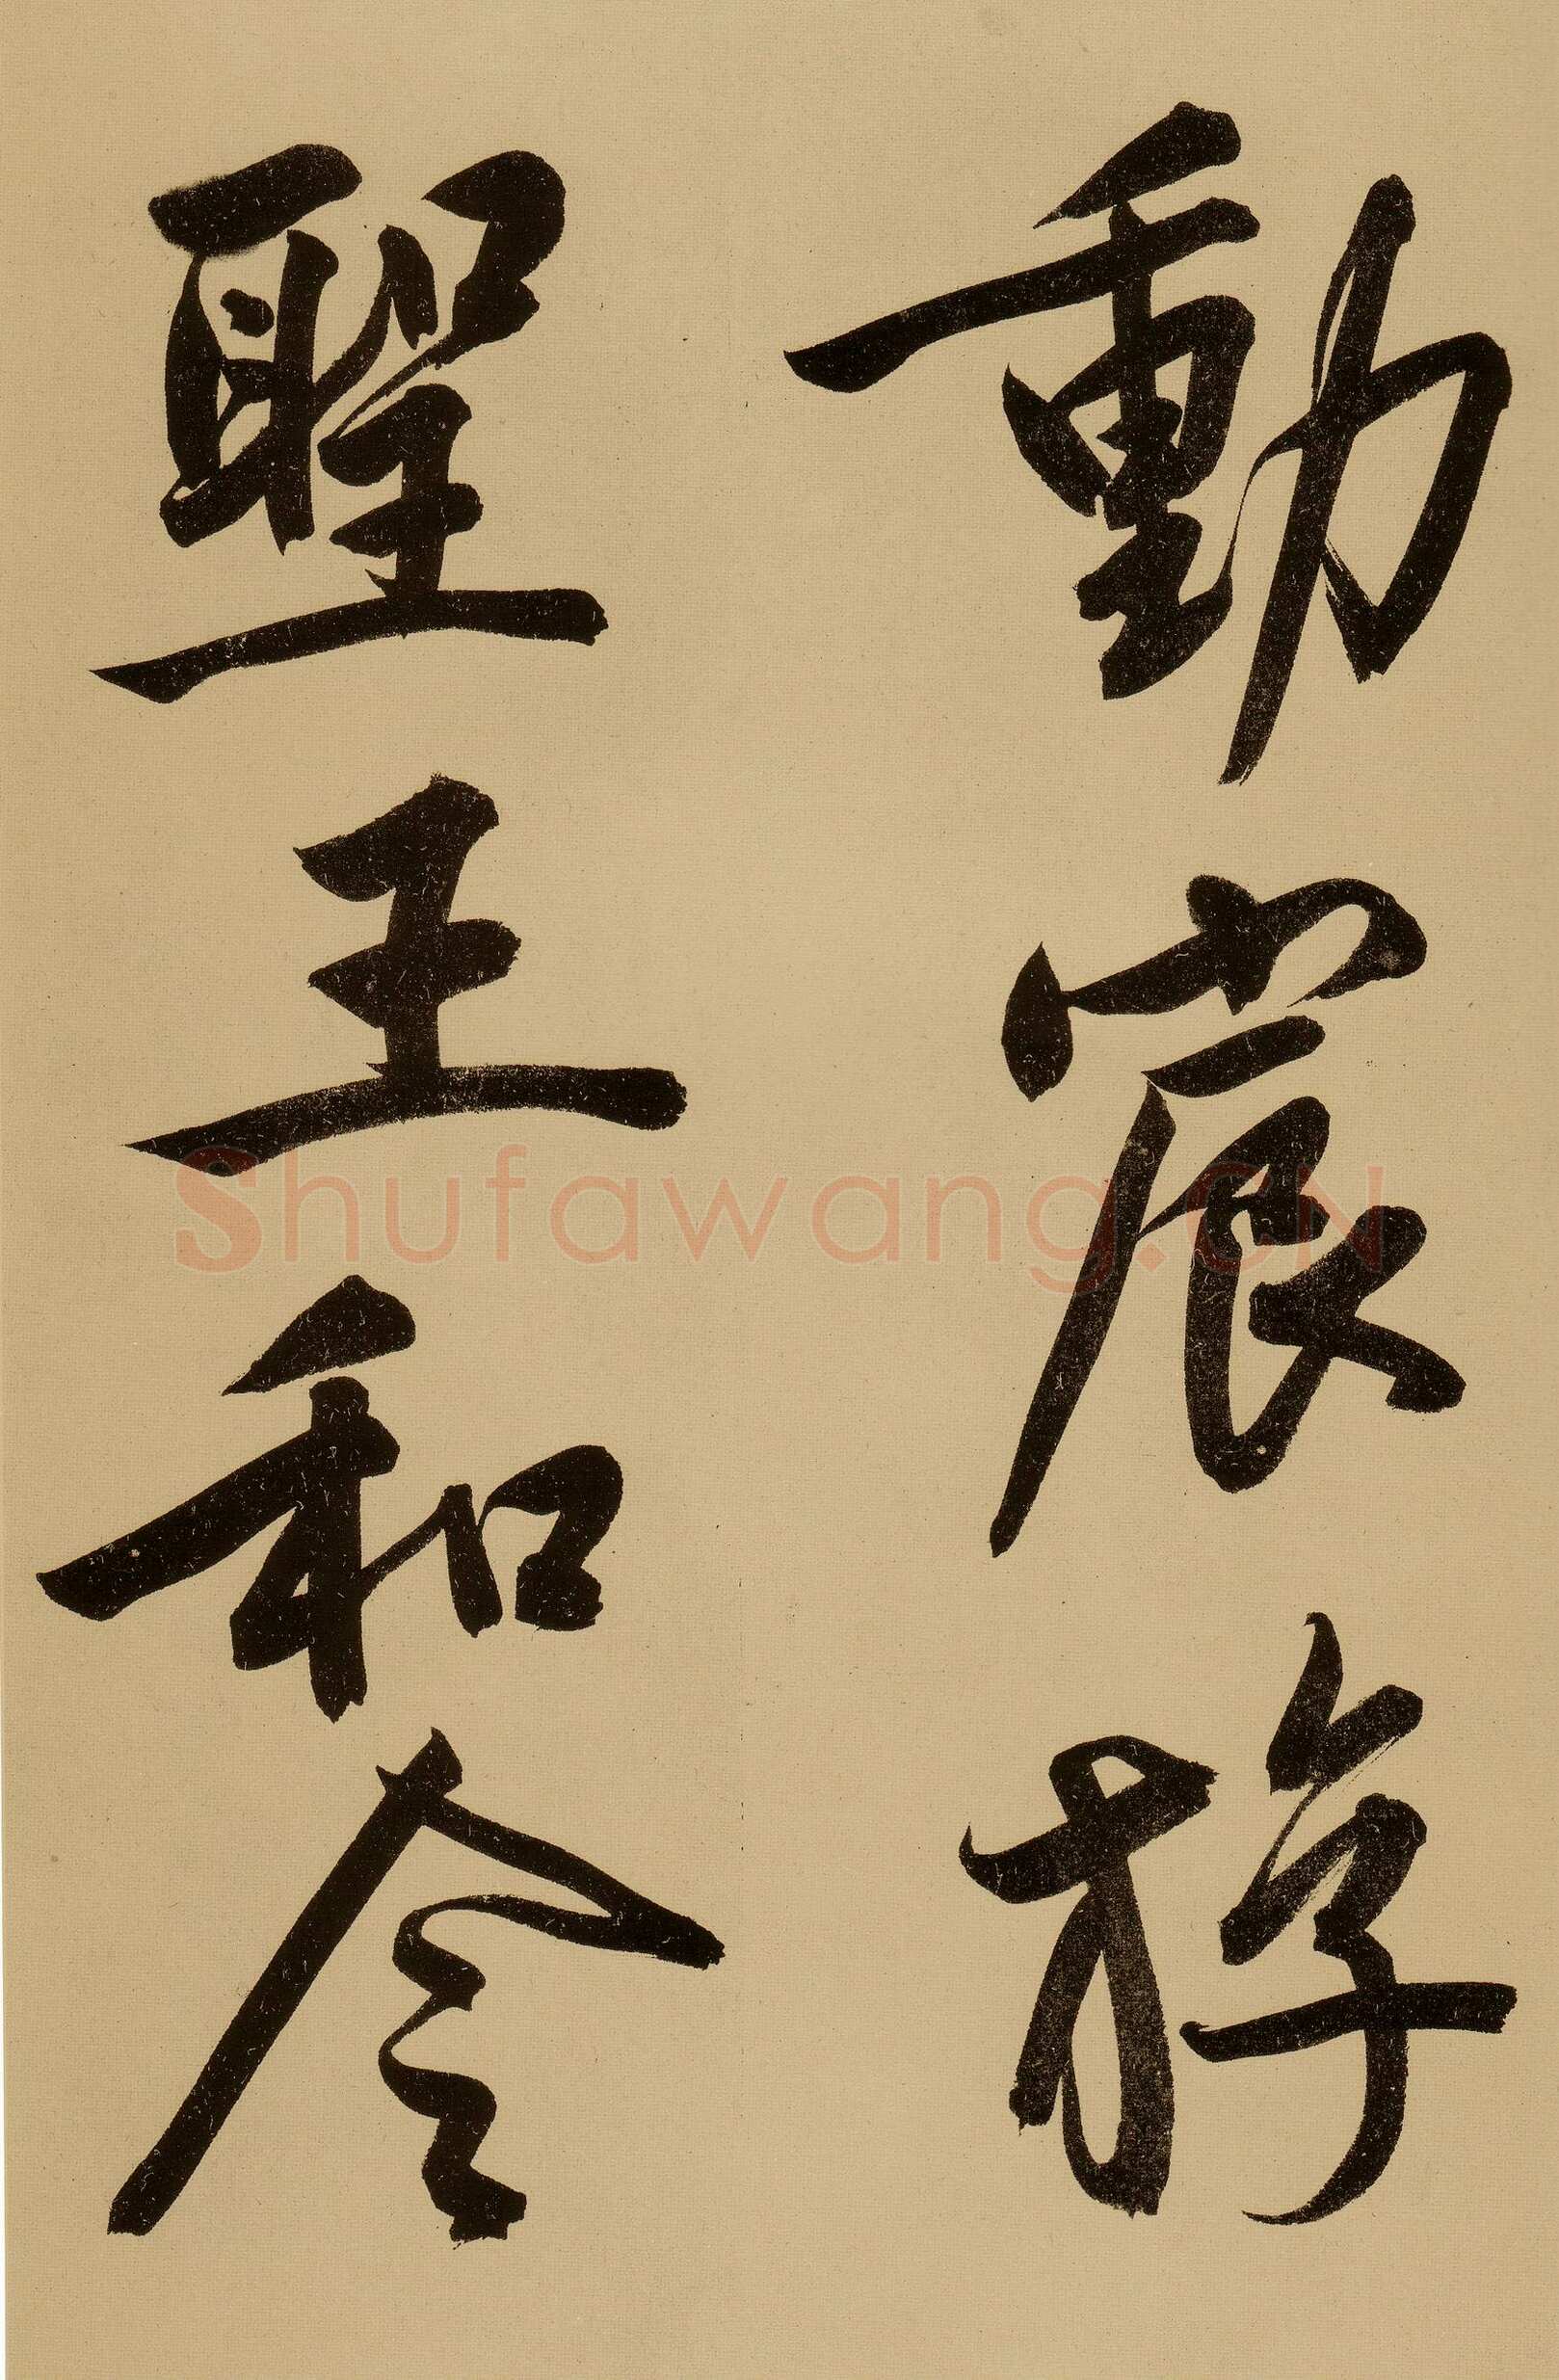 動宸斿
聖王和令
Shufawang.CN